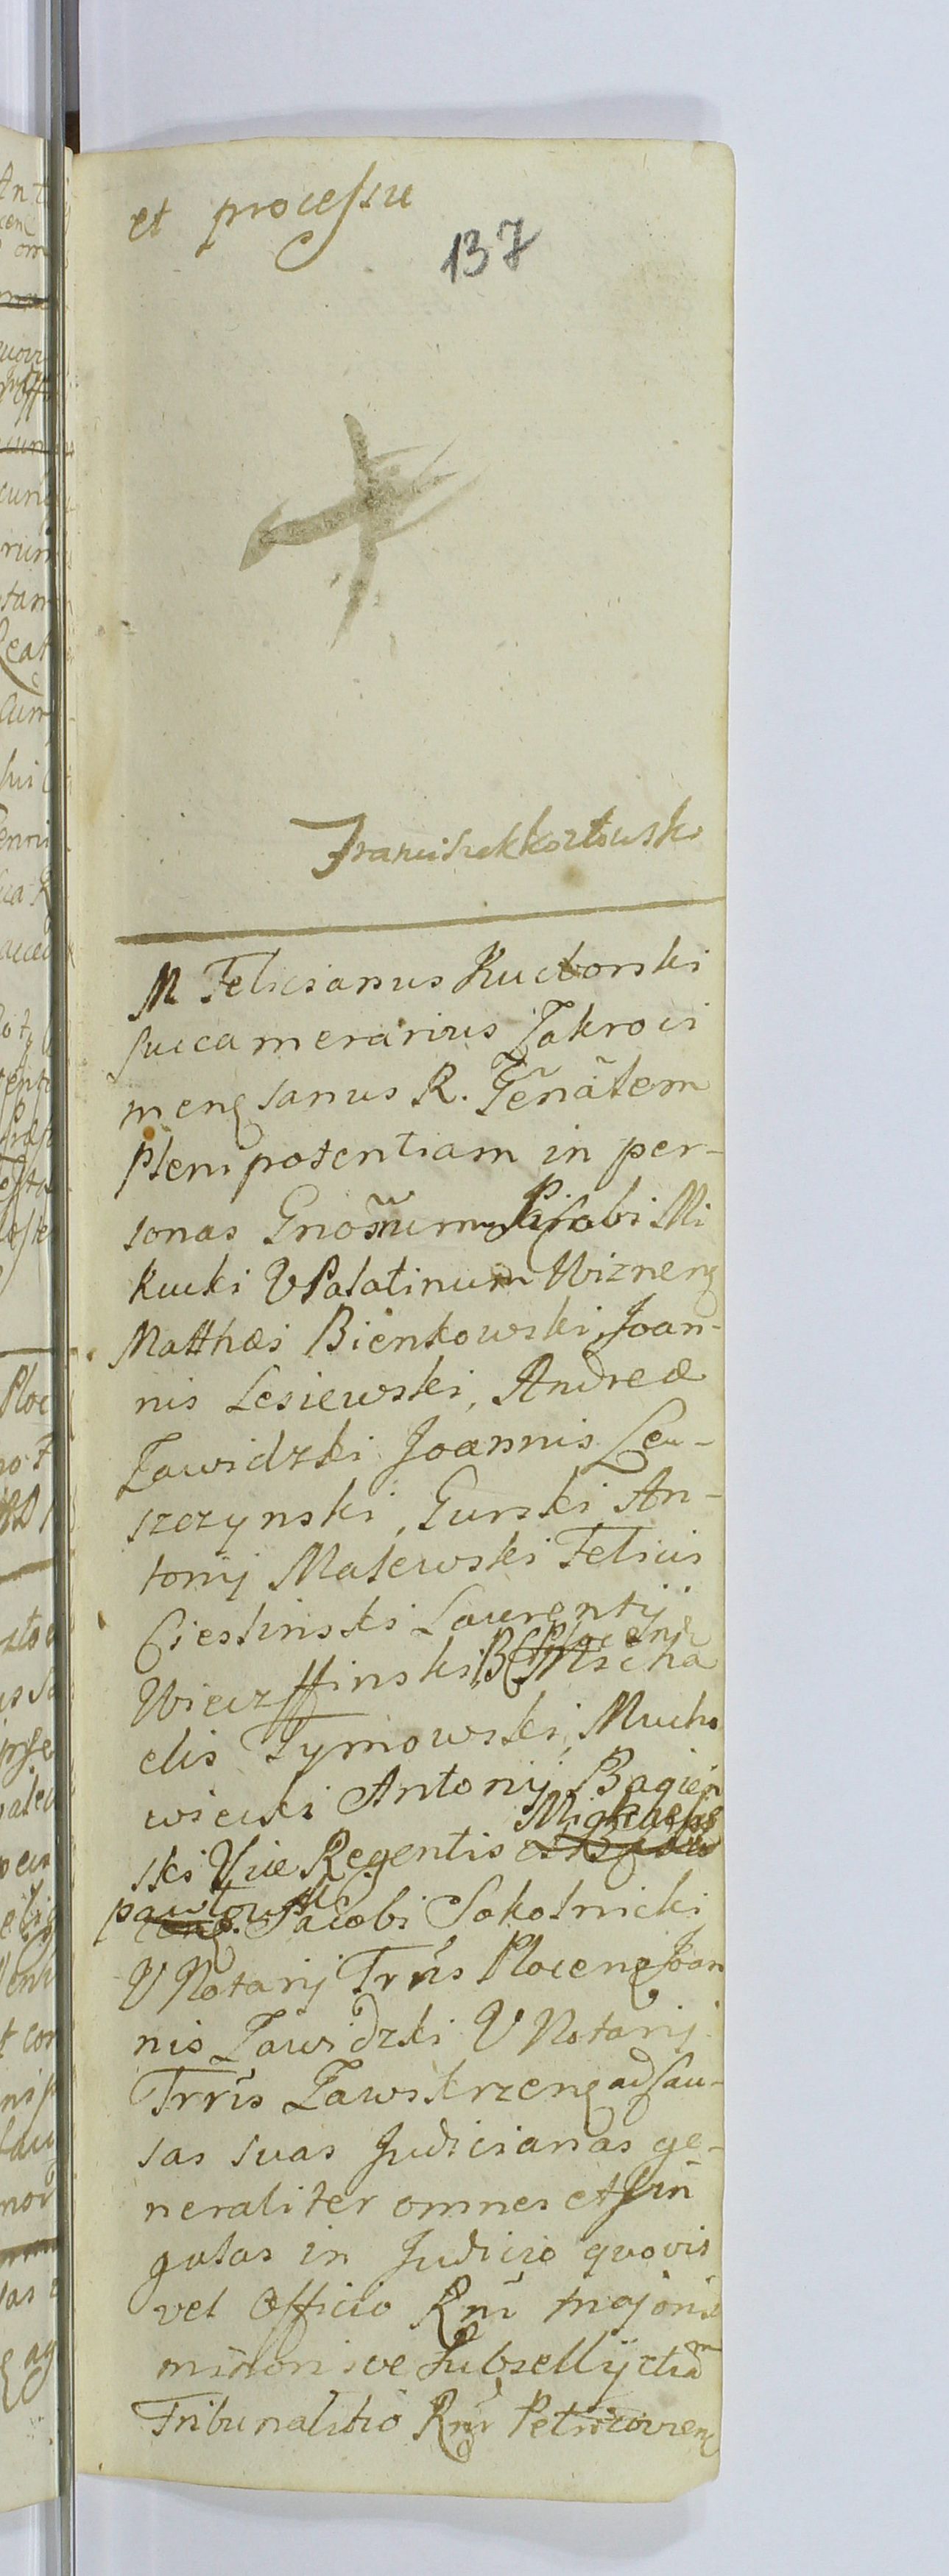 et processu
137
Franciszek Kozłowski
M Felicianus Kuczborski
succamerarius Zakroci
mensianus R. Gēnālem
Plenipotentiam in per-
sonas Gnosurum Jacobi Mi
kucki V Palatinum Wiznens
Matthæi Bieńkowski, Joan-
nis Lesiewski, Andreæ
Zawidzki Joannis Lew-
szczynski, Gurski An-
tonij Malewski Felicis
Cieslinski Laurentij
Wierzffinski Plocens Micha
elis Tymowski, Mucho
wiecki Antonij Bagień
ski Vice Regentis Michaelis
Pawłowski Jacobi Sokolnicki
V Notarij Trrīs Plocens Joan
nis Zawidzki V Notarij
Trrīs Zawskrzens ad Cau-
sas suas Judicianas ge-
neraliter omnes et sin
gulas in Judicio quovis
vel Officio Rnī majoris
minorisve Subsellij etiam
Tribunalitio Rnī Petricoviens